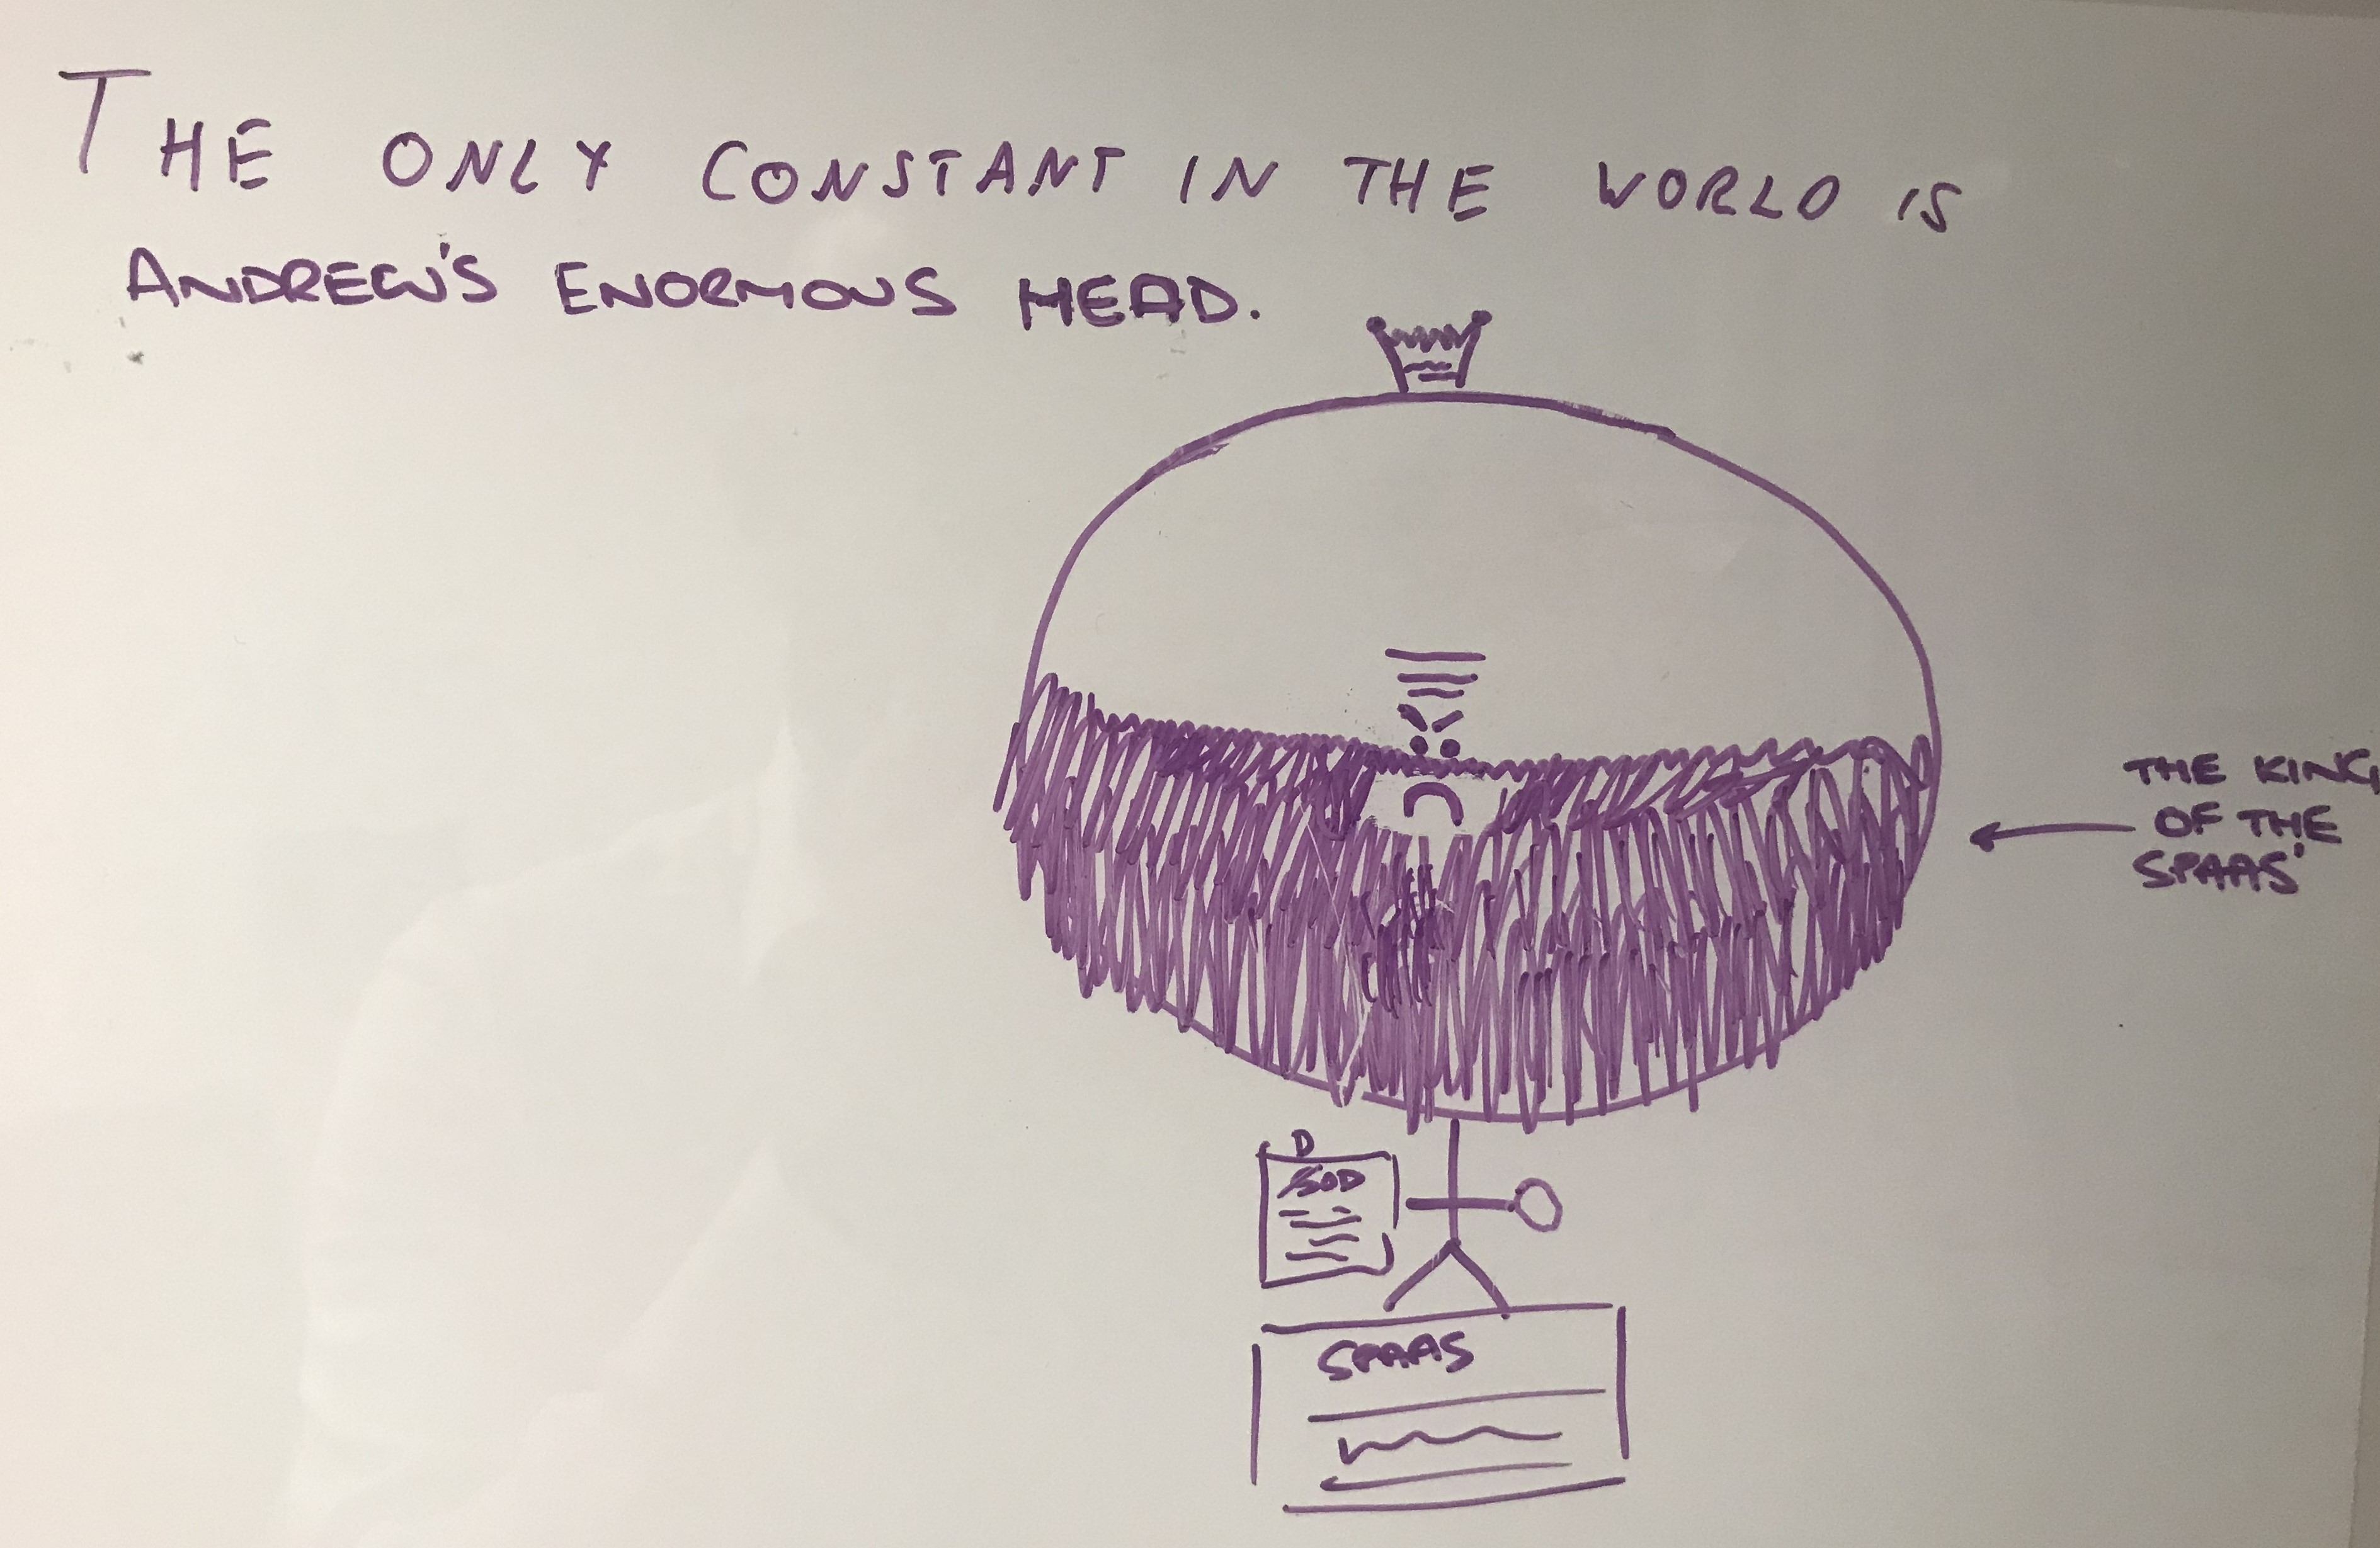 THE ONLY CONSTANT IN THE WORLD IS
ANDREW'S ENORMOUS HEAD.
THE KING
OF THE
SPAAS'
D
SOD
SPAAS